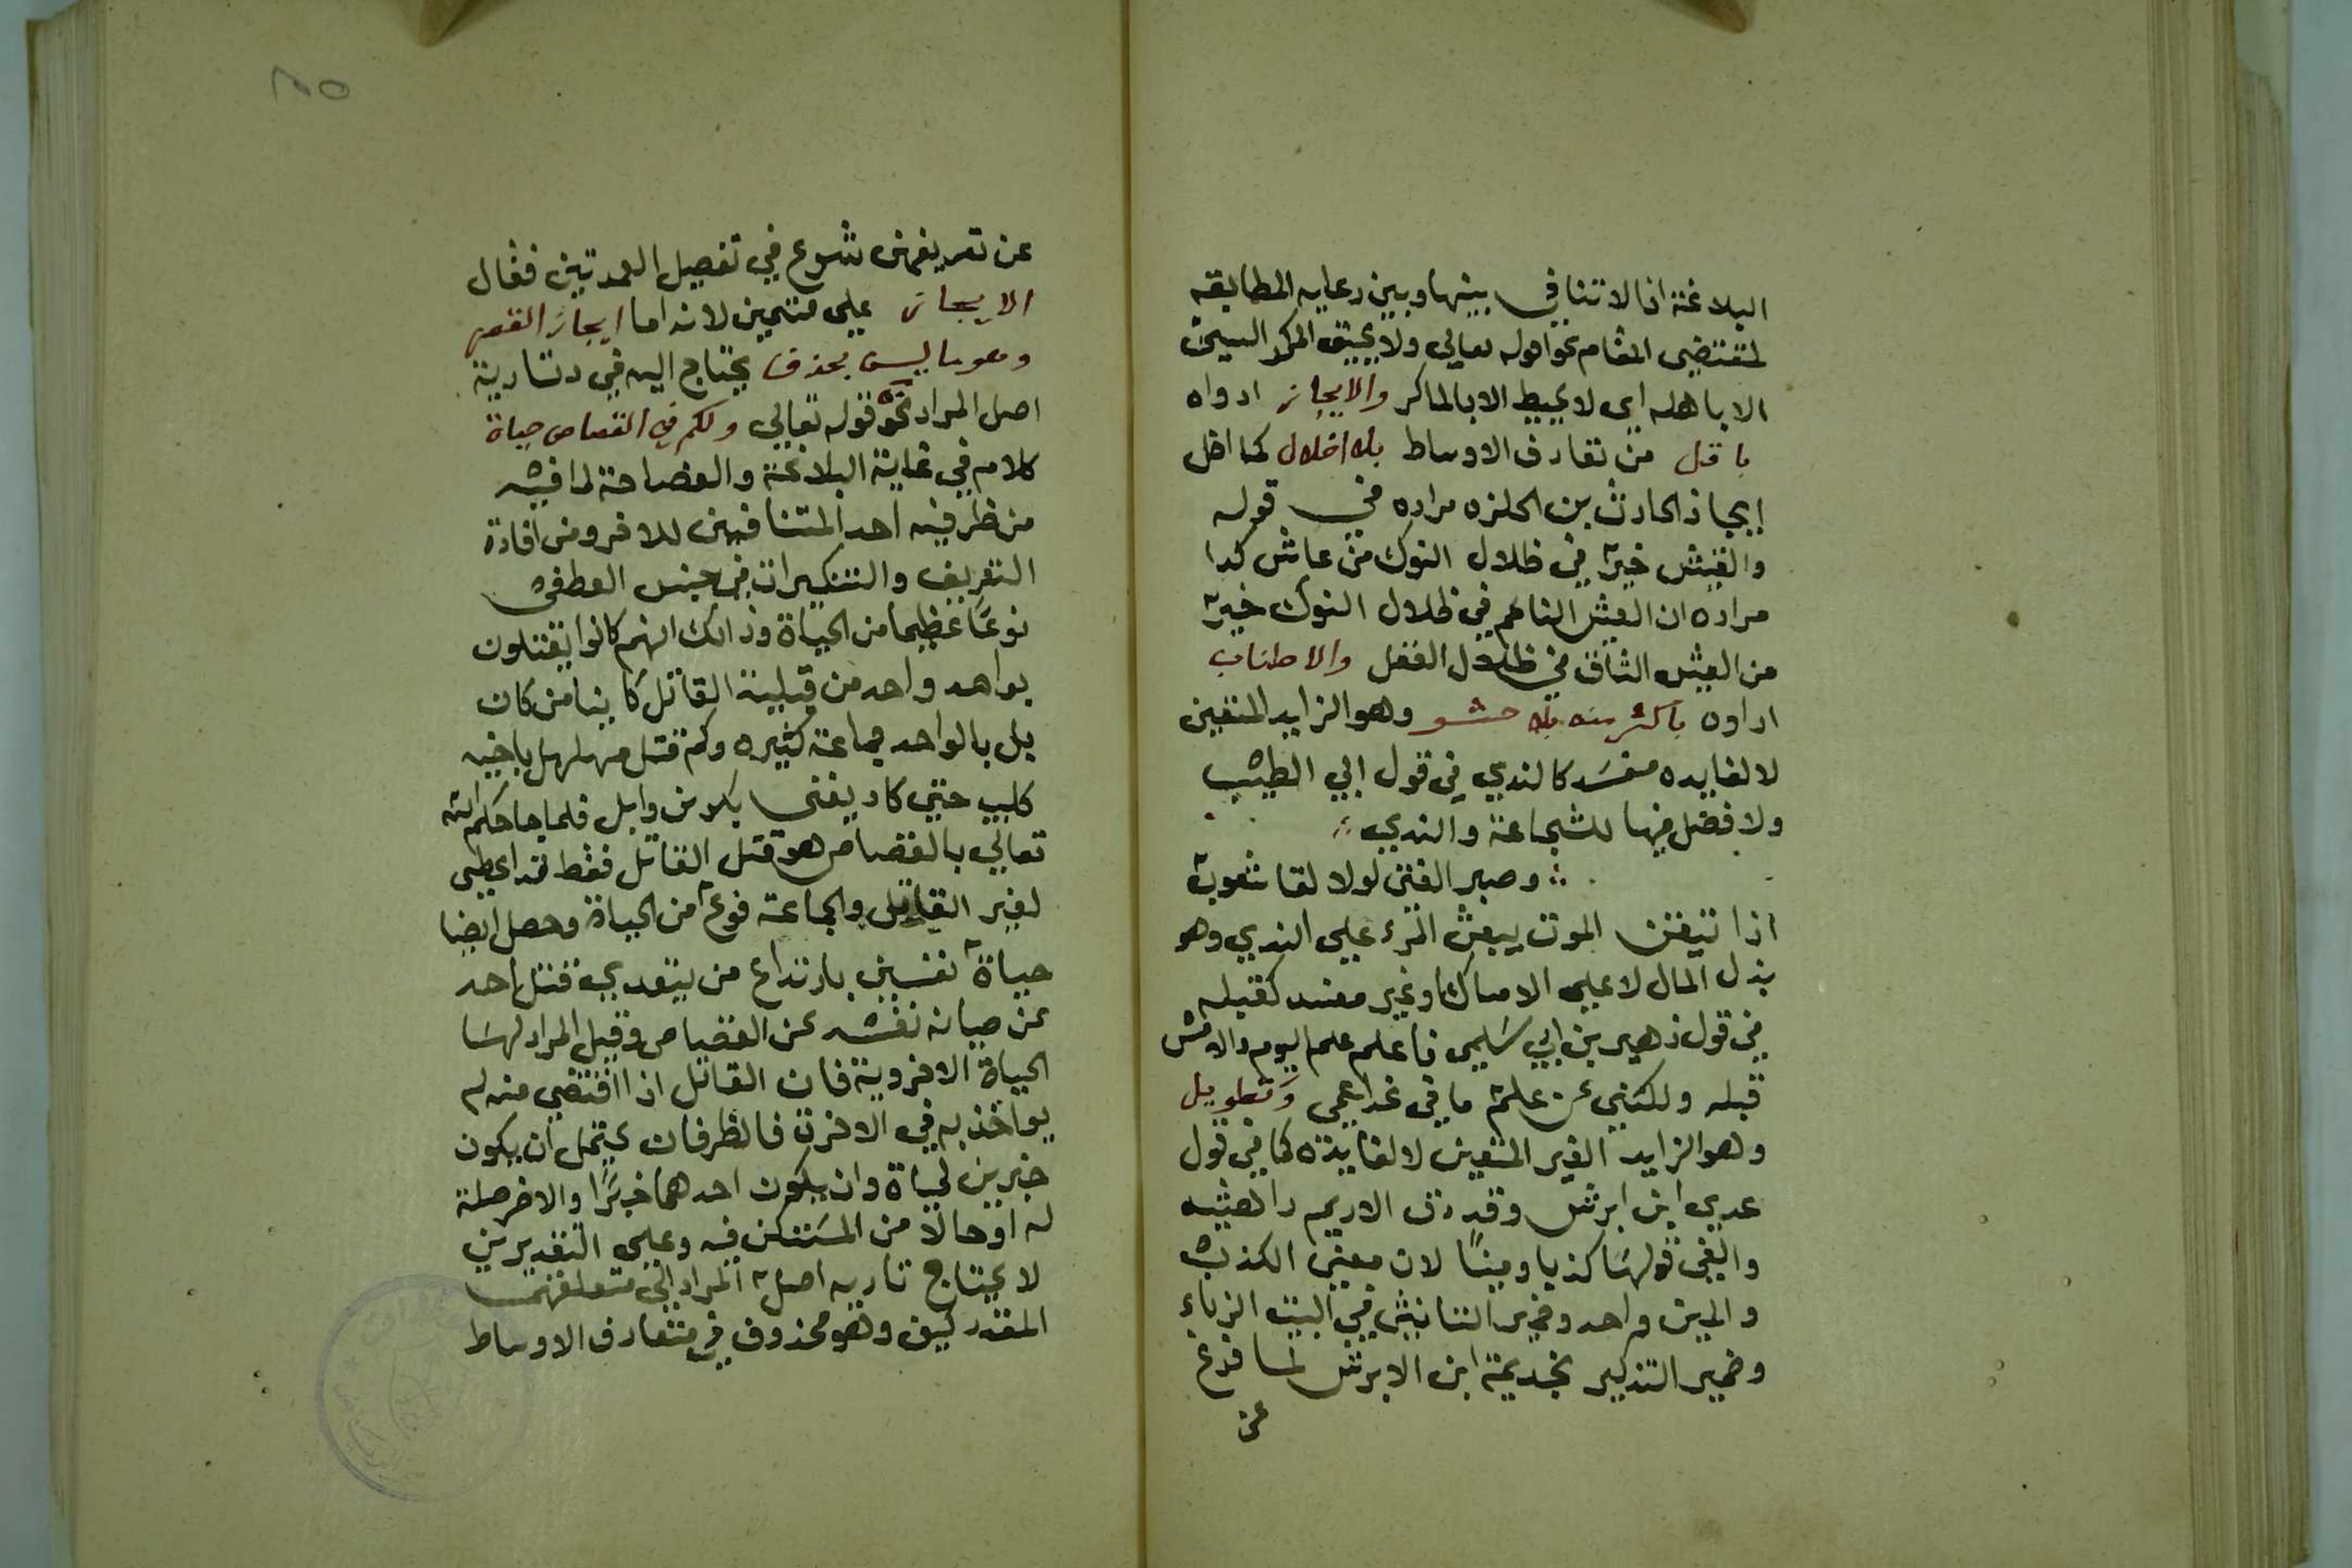 البلاغة اذا لا تنافي بينها وبين رعايه المطابقه
لمقتضى المقام نحو قوله تعالي ولا يحيق المكر السيئ
الا باهله اي لا يحيط الا بالماكر والايجاز ادواه
باقل من تعارف الاوساط بلا اخلال كما اخل
ايجاز الحارث بن الحلزه مراده في قوله
والعيش خير في ظلال النوك من عاش كدا
مراده ان العيش الناعم في ظلال النوك خير
من العيش الشاق في ظلال العقل والاطناب
اداوه باكثر منه بلا حشو وهو الزايد المتعين
لا لفايده مفسد كالندي في قول ابي الطيب
ولا فضل فيها للشجاعة والندي
وصبر الفتي لولا لقا شعوب
اذا تيقن الموت يبعث المرء علي الندي وهو
بذل المال لا علي الامساك او غير مفسد كقبله
في قول زهير بن ابي سليمي فاعلم علم اليوم والامس
قبله ولكنني عن علم ما في غدا عمي وتطويل
وهو الزايد الغير المتعين لا لفايدة كما في قول
عدي ابن ابرش وقددت الاديم راهشيه
والفي قولها كذبا ومينًا لان معنى الكذب
والمين واحد وضمير التانيث في البيت الزباء
وضمير التذكير لجذيمة ابن الابرش لما فرغ
عن
٢٥
عن تعريفهن شرع في تفصيل العمدتين فقال
الايجاز علي قسمين لانه اما ايجاز القصر
وهو ما ليس بحذف يحتاج اليه في دتادية
اصل المراد نحو قوله تعالي ولكم في القصاص حياة
كلام في غاية البلاغة والفصاحة لما فيه
من ظرفيه احد المتنافيين للاخر ومن افادة
التعريف والتنكيرات في جنس العطفي
نوعًا عظيما من الحياة وذالك انهم كانوا يقتلون
بواحد واحد من قبيلة القاتل كاينا من كان
بل بالواحد جماعة كثيره وكم قتل مهلهل باخيه
كليب حتي كاد يفني بكر بن وايل فلما جا حكم الله
تعالي بالقصاص هو قتل القاتل فقط قد اعطي
لغير القاتل والجماعة نوع من الحياة وحصل ايضا
حياة نفسين بارتداع من يتعدي قتل احد
عن صيانه نفسه عن القصاص وقيل المراد لها
الحياة الاخروية فان القاتل اذا اقتضي منه لم
يواخذ به في الاخرة فالظرفان يحتمل ان يكون
خبرين لحياة وان يكون احدهما خبرًا والاخر صلة
له او حالا من المستكن فيه وعلي التقديرين
لا يحتاج تاديه اصل المراد الي متعلقهما
المقدر كيف وهو محذوف في متعارف الاوساط